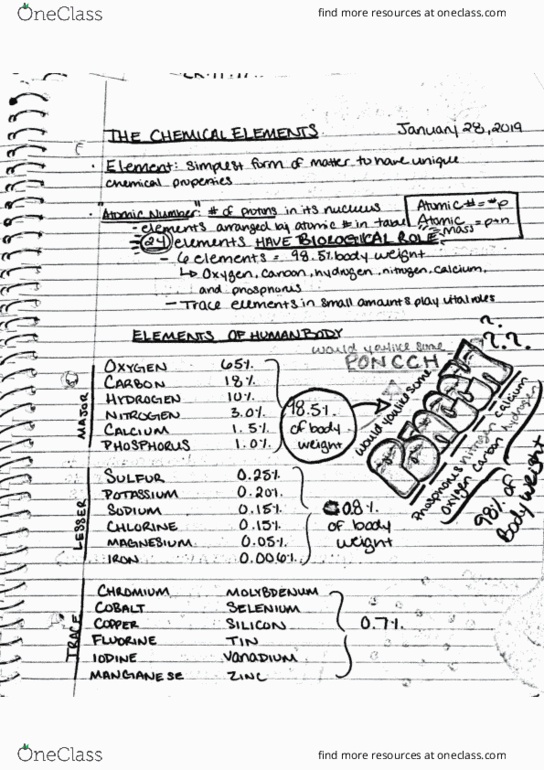 OneClass
find more resources at oneclass.com
THE CHEMICAL ELEMENTS
January 28, 2019
• Element: simplest form of matter to have unique
chemical properties
• "Atomic Number": # of protons in its nucleus
Atomic # = #p
Atomic mass = p+n
- elements arranged by atomic # in table
- 24 elements HAVE BIOLOGICAL ROLE
- 6 elements = 98.5% body weight
↳ Oxygen, carbon, hydrogen, nitrogen, calcium,
and phosphorus
- Trace elements in small amounts play vital roles
ELEMENTS OF HUMAN BODY
would you like some
PONCCH
MAJOR
OXYGEN 65%
CARBON 18%
HYDROGEN 10%
NITROGEN 3.0%
CALCIUM 1.5%
PHOSPHORUS 1.0%
98.5%
of body
weight
would you like some
?
?.?.
phosphorus nitrogen calcium
oxygen carbon hydrogen
98% of
Body weight
LESSER
SULFUR 0.25%
POTASSIUM 0.20%
SODIUM 0.15%
CHLORINE 0.15%
MAGNESIUM 0.05%
IRON 0.006%
0.8%
of body
weight
TRACE
CHROMIUM MOLYBDENUM
COBALT SELENIUM
COPPER SILICON
FLUORINE TIN
IODINE VANADIUM
MANGANESE ZINC
0.7%
OneClass
find more resources at oneclass.com